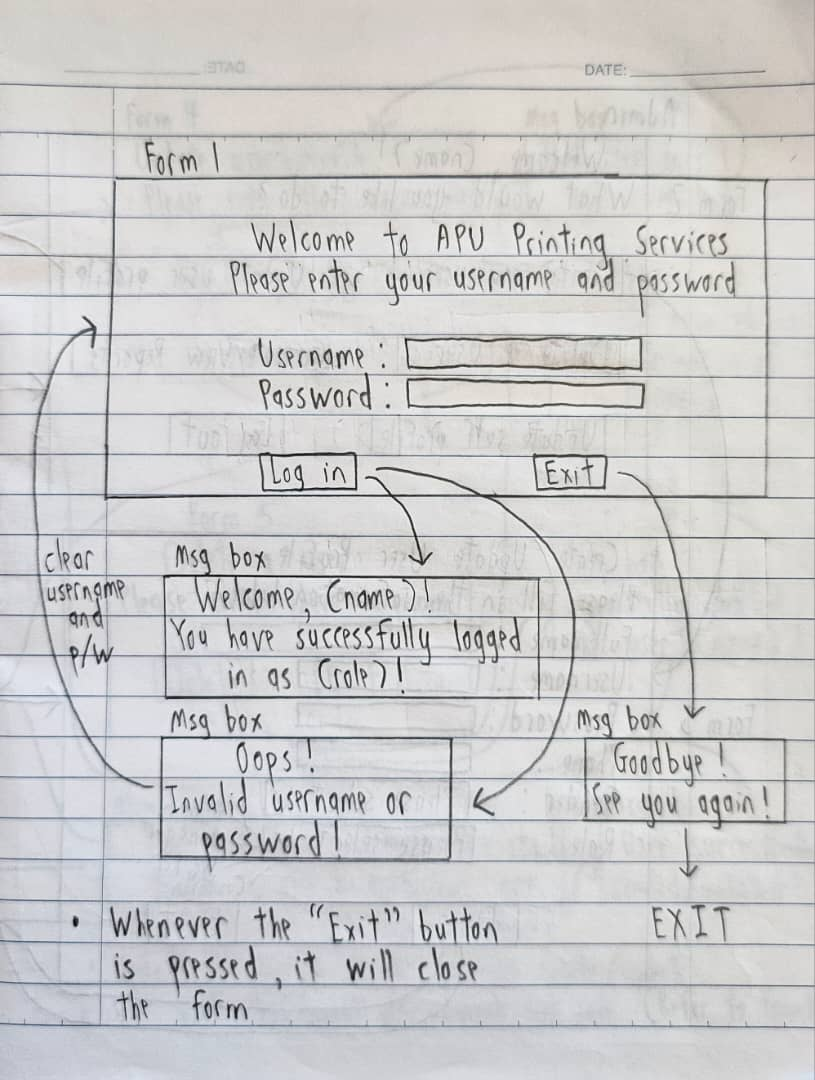 DATE:
Form 1
Welcome to APU Printing Services
Please enter your username and password
Username :
Password :
Log in
Exit
clear
username
and
p/w
Msg box
Welcome, (name)!
You have successfully logged
in as (role)!
Msg box
Oops!
Invalid username or
password!
Msg box
Goodbye!
See you again!
EXIT
• Whenever the "Exit" button
is pressed, it will close
the form